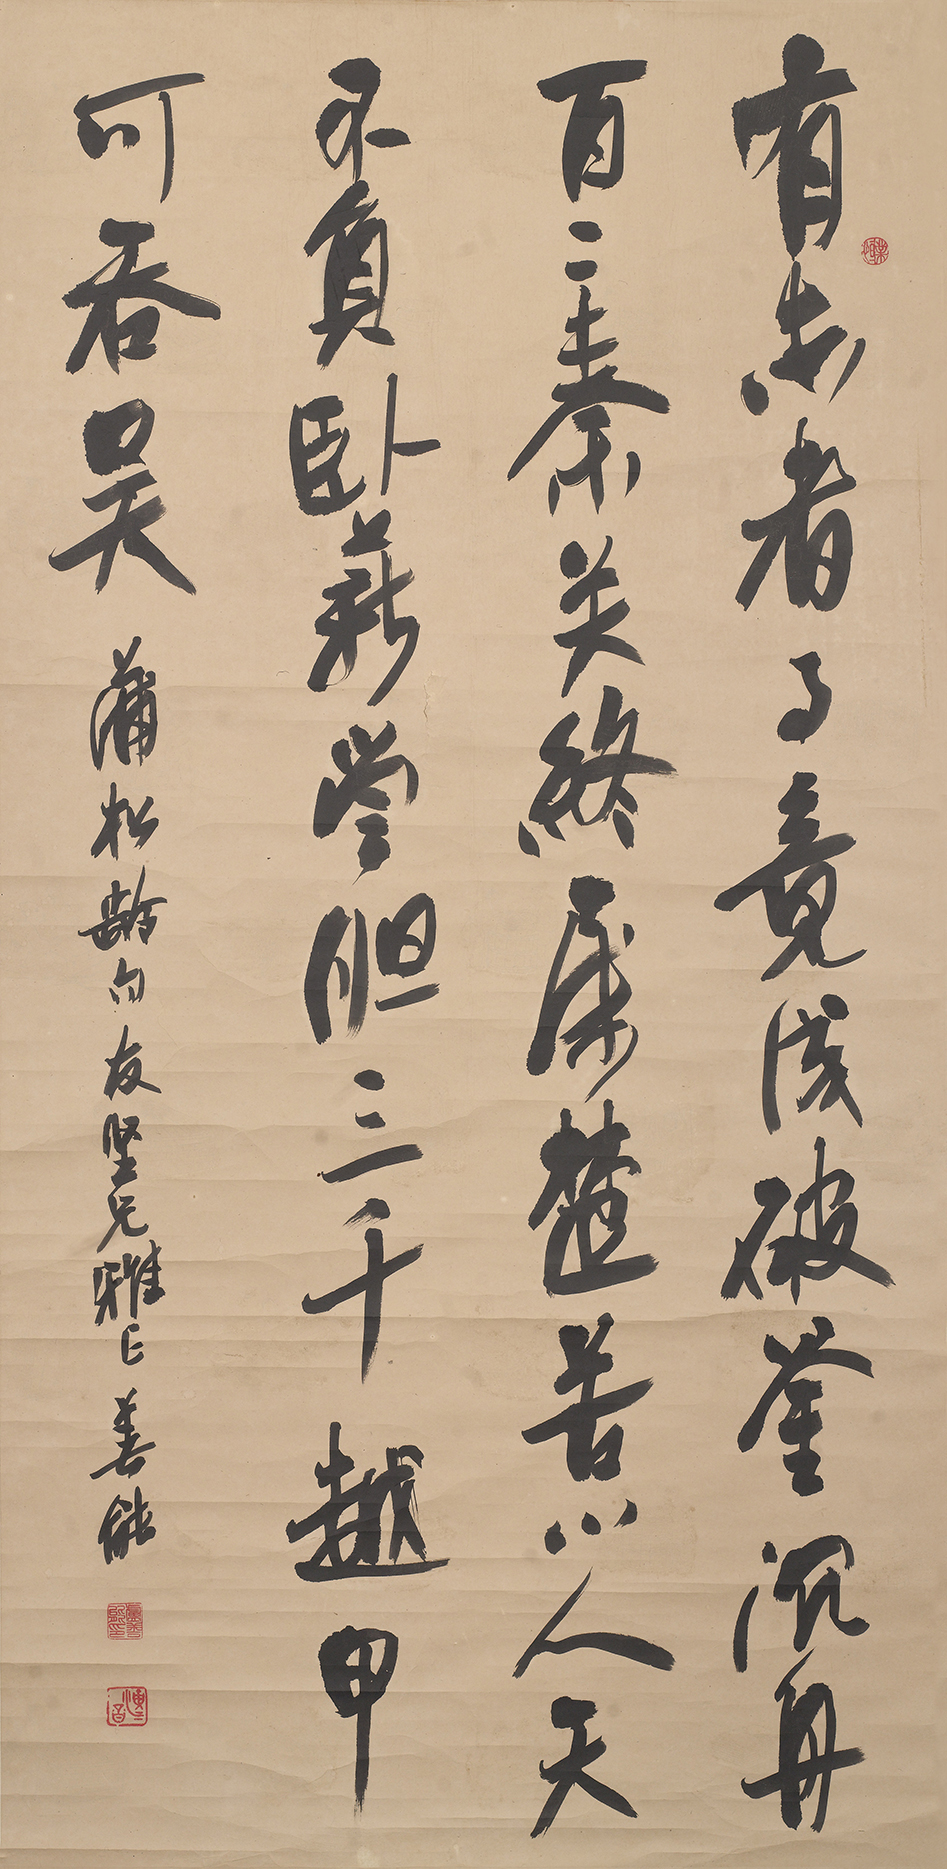 有志者事竟成破釜沉舟
百二秦关終属楚苦心人天
不負卧薪尝胆三千越甲
可吞吴
蒲松龄句友坚兄雅正善